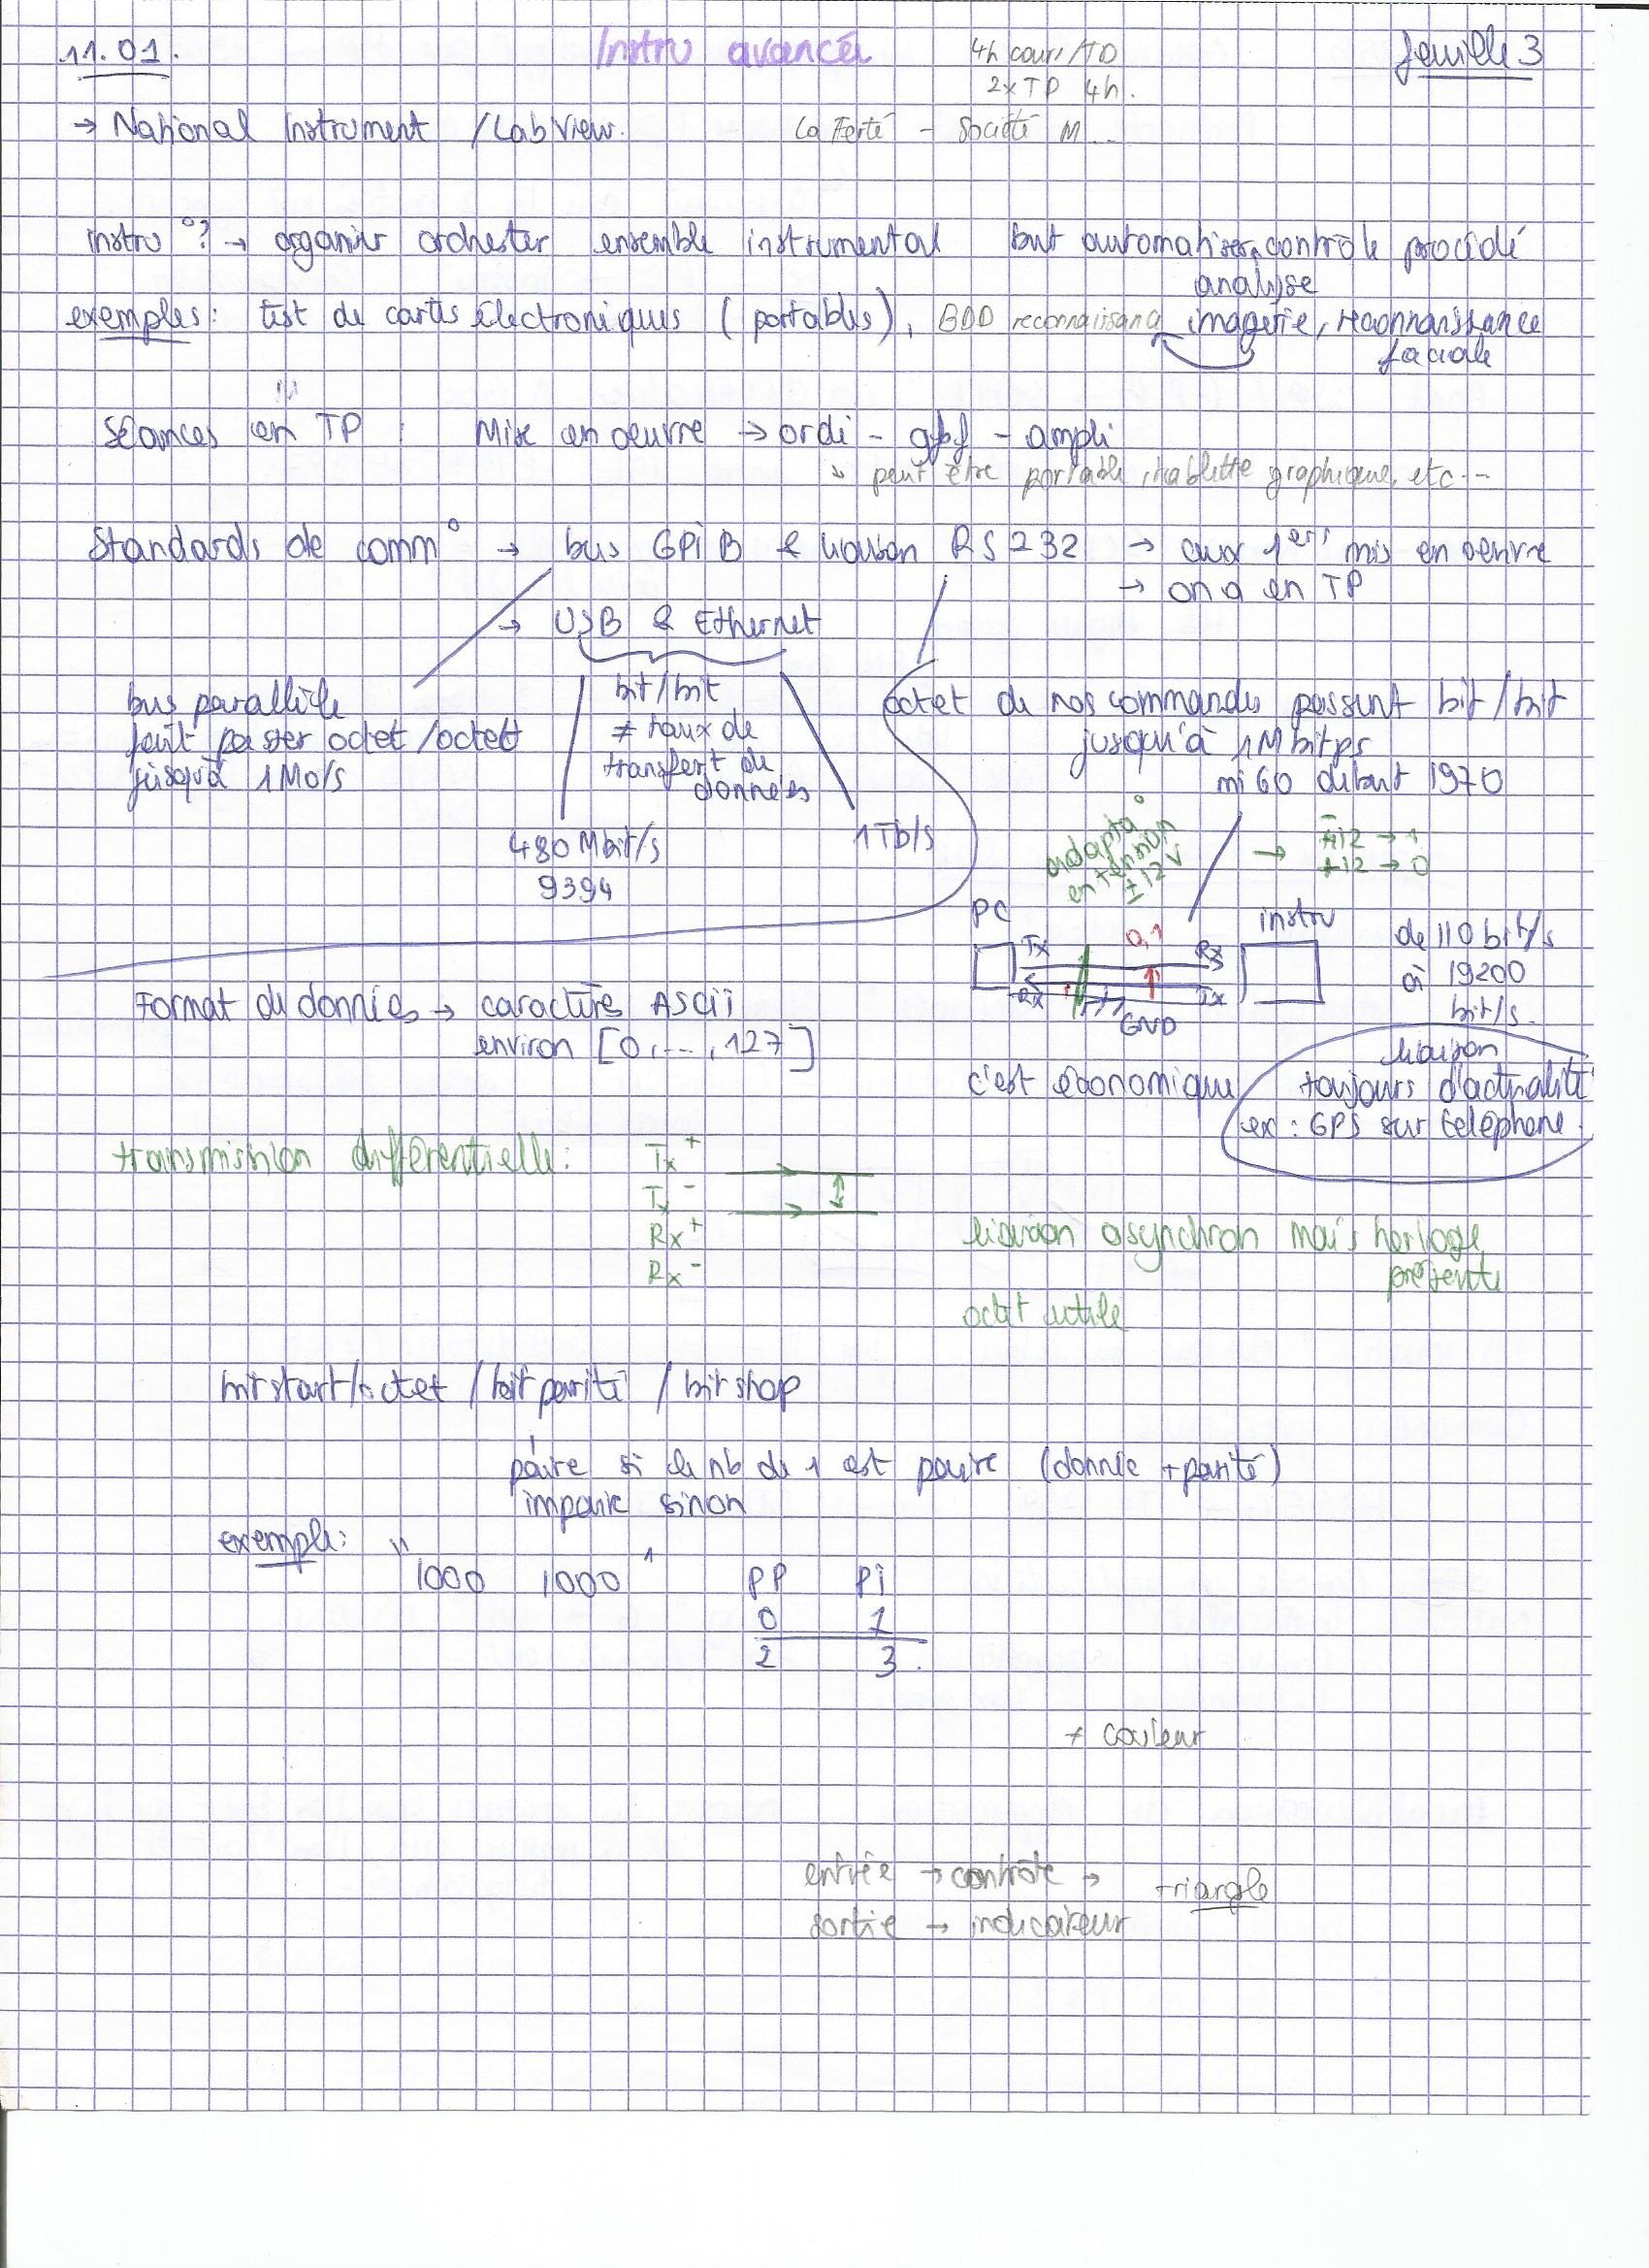 11.01.
Instru avancée
4h cours/TD
2xTP 4h.
feuille 3
→ National Instrument / LabView.
La Ferté - Société M...
instru°? → organiser orchester ensemble instrumental but automatiser, contrôle procédé
analyse
exemples : test de cartes électroniques (portables), BDD reconnaissance imagerie, reconnaissance
faciale
Séances en TP : Mise en oeuvre → ordi - gbf - ampli
↘ peut être portable, tablette graphique, etc...
Standards de comm° → bus GPiB & liaison RS232 → aux 1ers mis en oeuvre
→ on a en TP
→ USB & Ethernet
bus parallèle
fait passer octet/octet
jusqu'à 1Mo/s
bit/bit
≠ taux de
transfert de
données
480 Mbit/s
9394
1Tb/s
octet de nos commandes passent bit/bit
jusqu'à 1Mbitps
mi 60 debut 1970
adapta°
en tension
±12V
→ -12 → 1
+12 → 0
PC
Tx
0,1
Rx
instru
Rx
Tx
GND
de 110 bit/s
à 19200
bit/s.
Format du données → caractères ASCii
environ [0,...,127]
c'est économique
liaison
toujours d'actualité
ex : GPS sur téléphone.
transmission différentielle :
Tx+
Tx-
Rx+
Rx-
liaison asynchron mais horloge
présente
octet utile
bit start/octet / bit parité / bit shop
paire si le nb de 1 est paire (donnée + parité)
impaire sinon
exemple : "1000 1000"
PP Pi
0 1
2 3.
+ couleur
entrée → contrôle →
triangle
sortie → indicateur